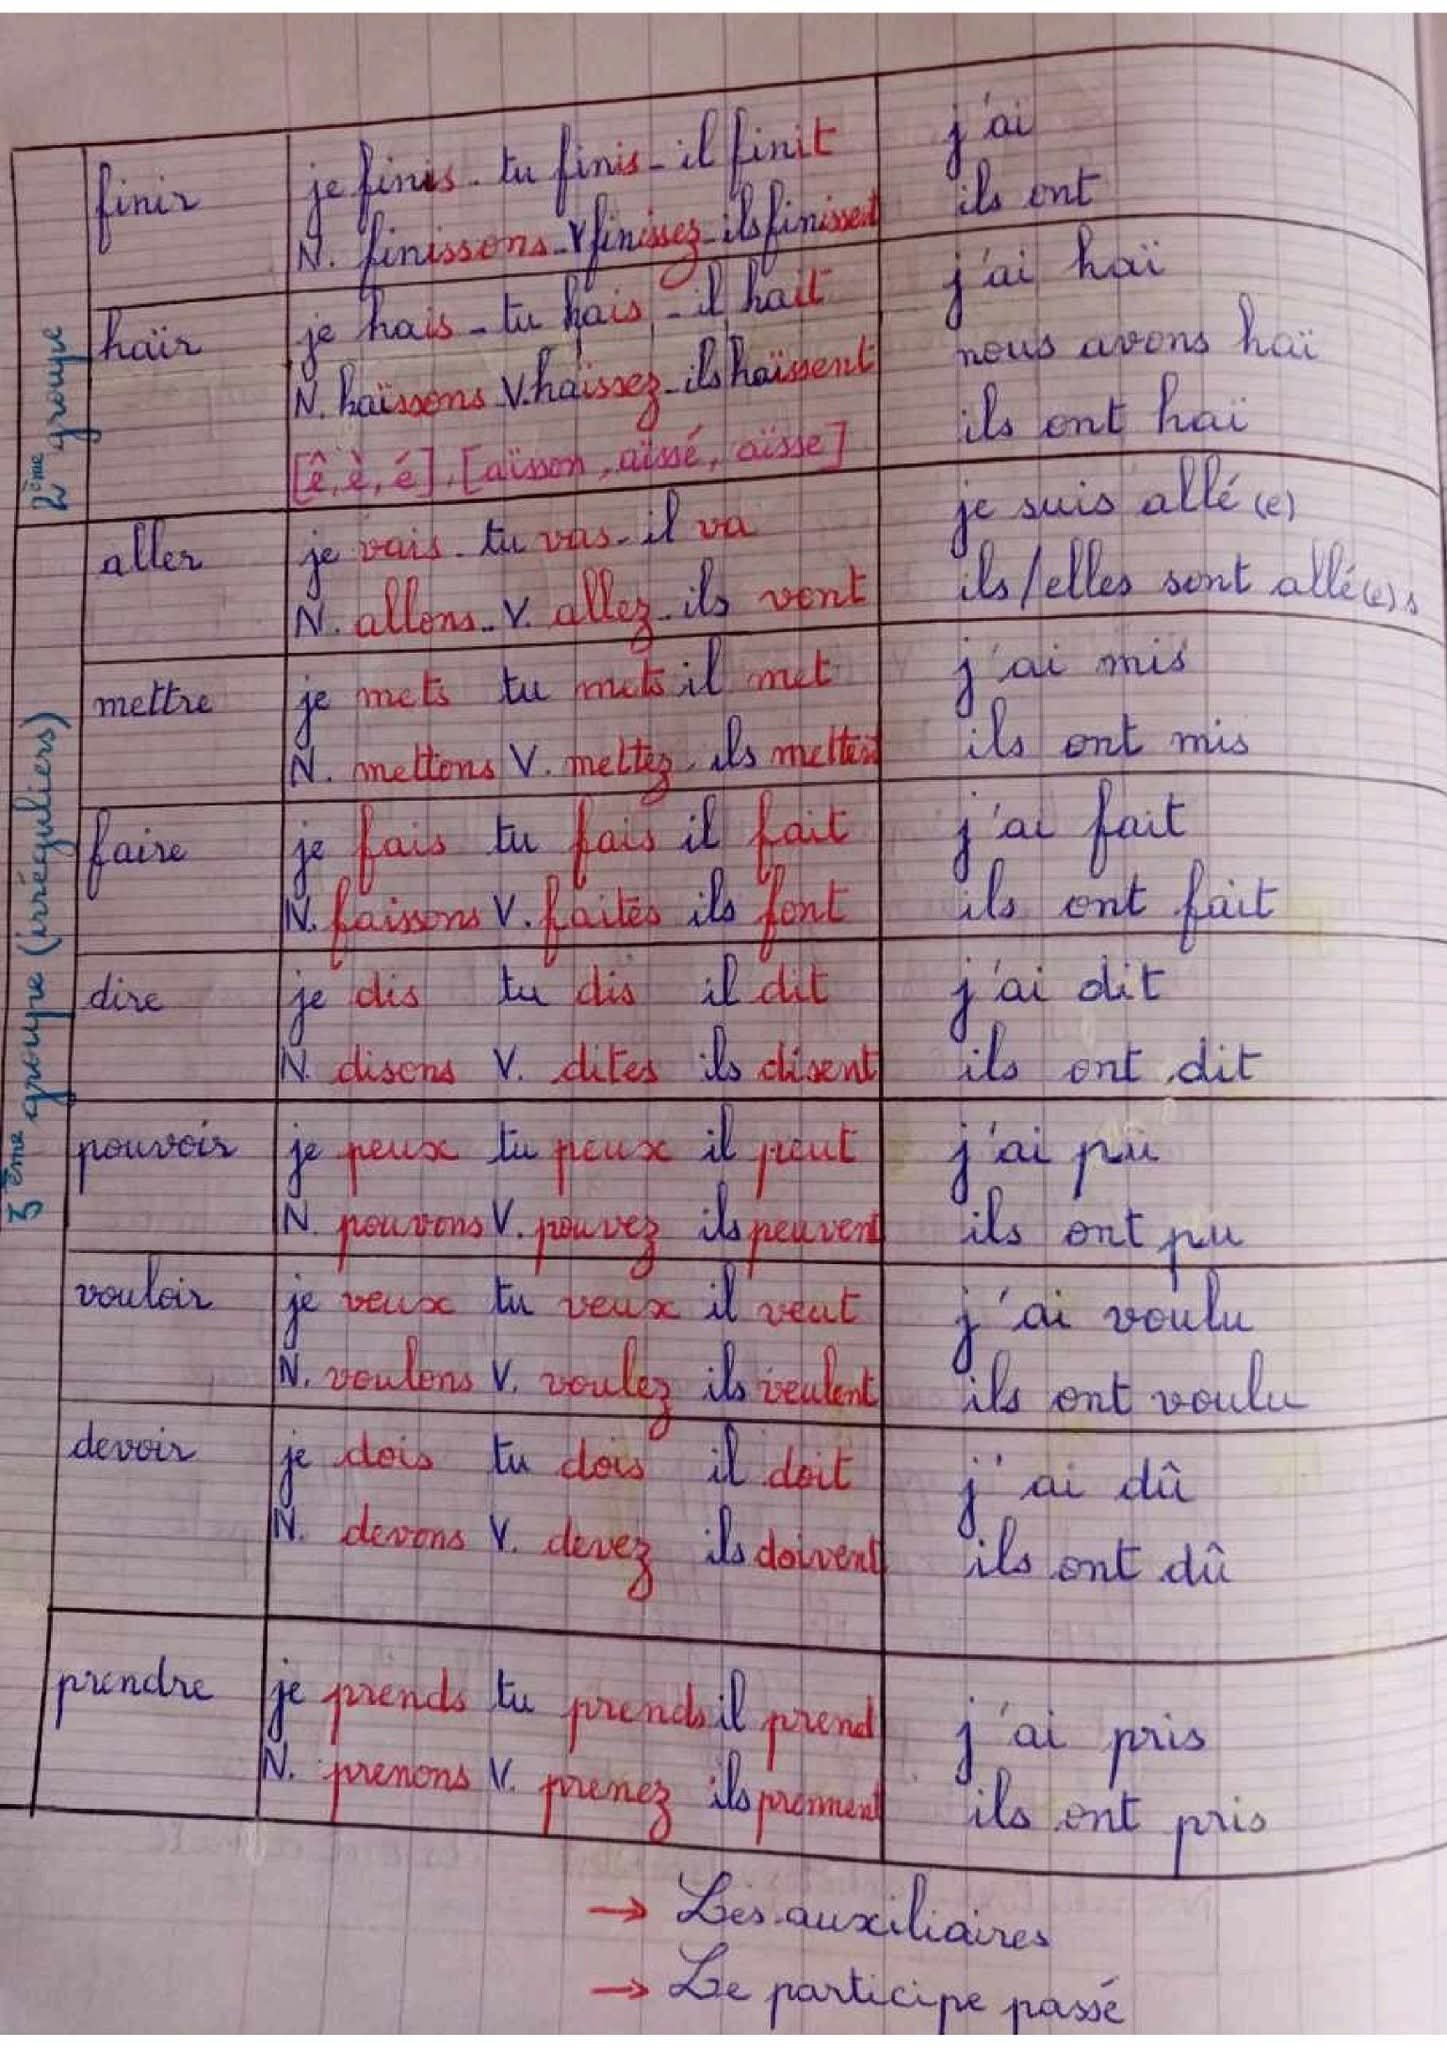 2ème groupe
finir
je finis - tu finis - il finit
N. finissons - V finissez - ils finissent
j'ai
ils ont
haïr
je hais - tu hais - il hait
N. haïssons V. haïssez - ils haïssent
[ê, è, é], [aïsson, aïssé, aïsse]
j'ai haï
nous avons haï
ils ont haï
3ème groupe (irréguliers)
aller
je vais - tu vas - il va
N. allons - V. allez - ils vont
je suis allé(e)
ils/elles sont allé(e)s
mettre
je mets tu mets il met
N. mettons V. mettez ils mettent
j'ai mis
ils ont mis
faire
je fais tu fais il fait
N. faissons V. faites ils font
j'ai fait
ils ont fait
dire
je dis tu dis il dit
N. disons V. dites ils disent
j'ai dit
ils ont dit
pouvoir
je peux tu peux il peut
N. pouvons V. pouvez ils peuvent
j'ai pu
ils ont pu
vouloir
je veux tu veux il veut
N. voulons V. voulez ils veulent
j'ai voulu
ils ont voulu
devoir
je dois tu dois il doit
N. devons V. devez ils doivent
j'ai dû
ils ont dû
prendre
je prends tu prends il prend
N. prenons V. prenez ils prennent
j'ai pris
ils ont pris
→ Les auxiliaires
→ Le participe passé